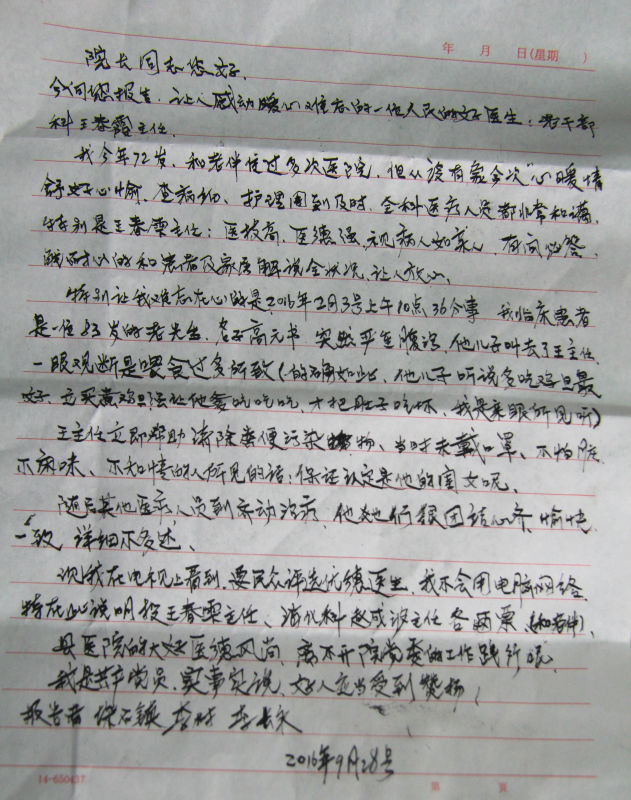 年 月 日(星期 )
院长同志您好.
今向您报告.让人感动暖心难忘的一位人民的好医生:老干部
科王春霞主任.
我今年72岁.和老伴住过多次医院,但从没有象今次"心暖情
舒好心愉.查病细、护理周到及时.全科医疗人员都非常和蔼,
特别是王春霞主任:医技高,医德强,视病人如亲人,有问必答.
耐心的和患者及家属解说全状况,让人放心.
特别让我难忘在心的是,2016年2月3号上午10点36分事 我临床患者
是一位83岁的老先生.名字高元书 突发严重腹泻.他儿子叫去了王主任
一眼观断是喂食过多所致(的确如此,他儿子听说多吃鸡旦最
好.立买煮鸡旦法让他爹吃吃吃,才把肚子吃坏.我是亲眼所见听)
王主任立即帮助清除粪便污染物、当时未戴口罩、不怕脏
不闻味、不知情的人所见的话:保证认定是他的闺女呢、
随后其他医疗人员到齐动治疗,他她们很团结心齐愉快
一致 详细不多述、
次我在电视上看到.要民众评选优德医生.我不会用电脑网络.
特在此说明投王春霞主任、消化科赵成 主任各两票(和老伴)、
县医院的大好医德风尚,离不开院党委的工作践行呢.
我是共产党员.实事实说.好人应当受到赞扬,
报告者 李
2016年9月28号
14-650437 第 页